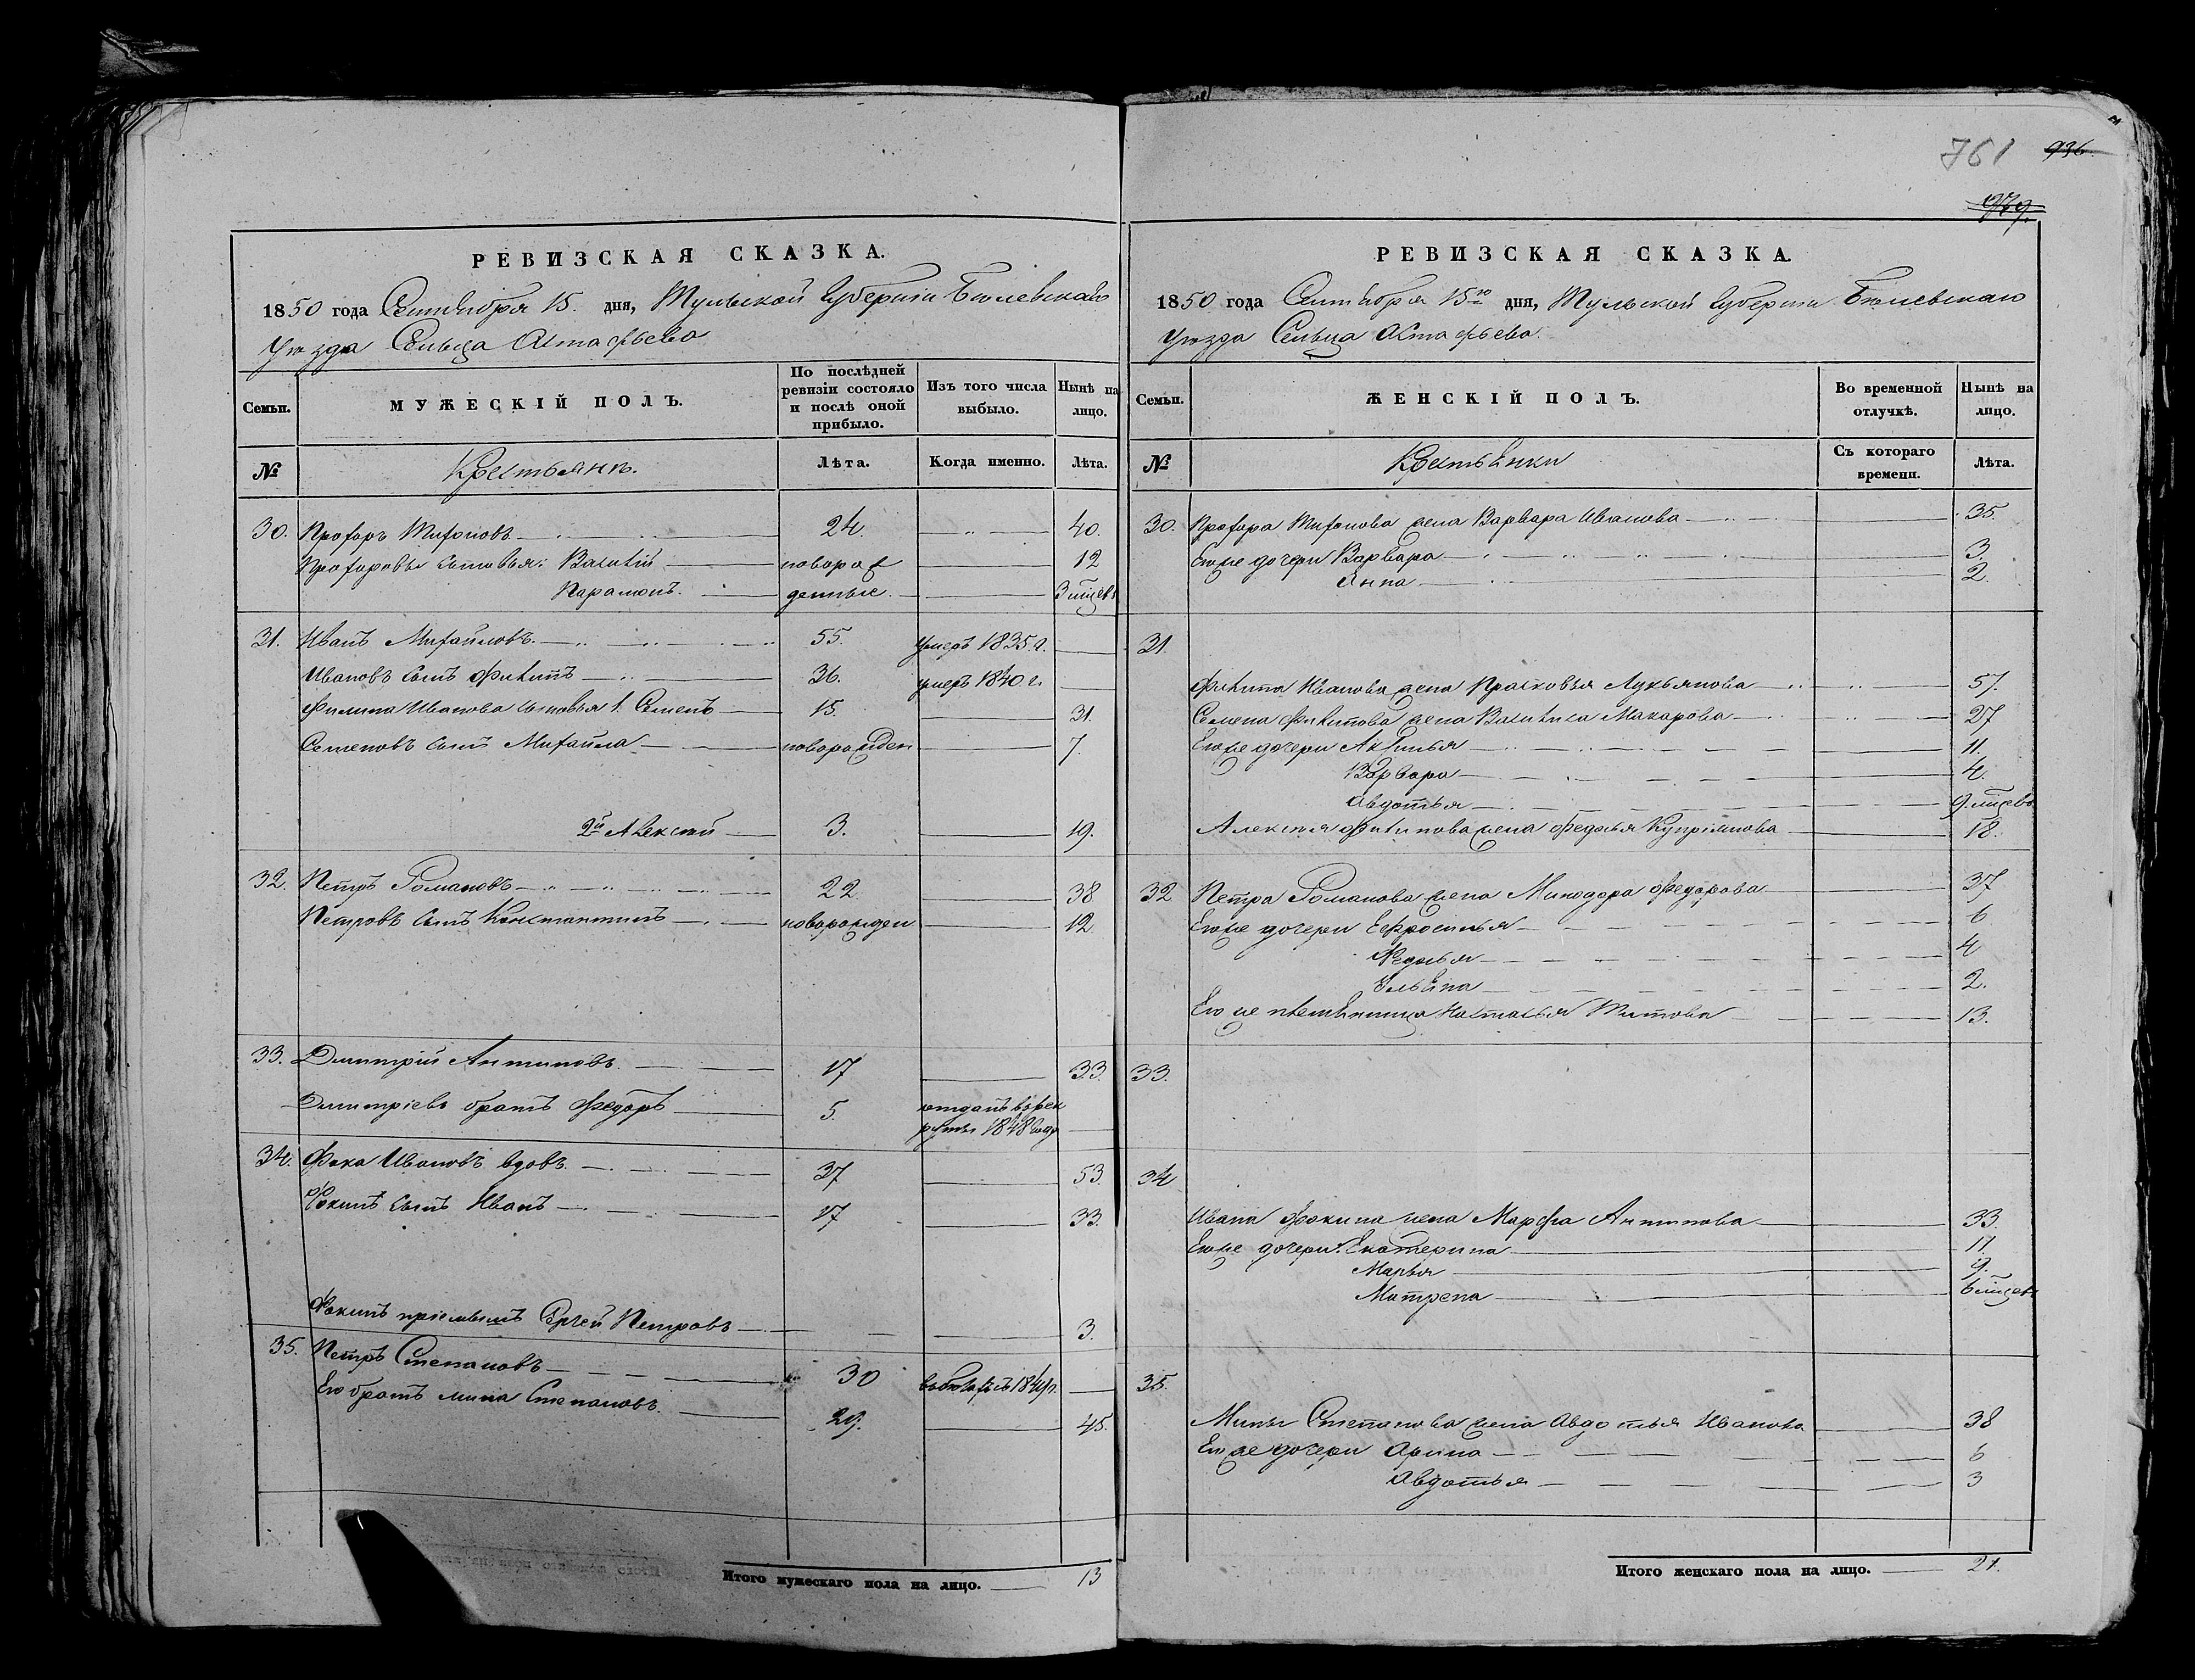 761 936
979.
РЕВИЗСКАЯ СКАЗКА.
1850 года Сентября 15. дня, Тульской Губернiи Бѣлевскаго
Уѣзда Сельца Астафьева
Семьи.
МУЖЕСКІЙ ПОЛЪ.
По послѣдней ревизіи состояло и послѣ оной прибыло.
Изъ того числа выбыло.
Нынѣ на лицо.
№ Крестьянъ. Лѣта. Когда именно. Лѣта.
30. Прохоръ Тихоновъ 24. 40.
Прохоровы сыновья: Василій новорож 12
Парамонъ. денные. 3 мцевъ
31. Иванъ Михайловъ. 55. умеръ 1835 г.
Ивановъ сынъ Филипъ 36. умеръ 1840 г.
Филипа Иванова сыновья 1. Семенъ 15. 31.
Семеновъ сынъ Михайла новорожден 7.
2й Алексѣй 3. 19.
32. Петръ Романовъ 22 38
Петровъ сынъ Константинъ новорожден 12
33. Дмитрій Антиповъ. 17 33.
Дмитріевъ братъ Федоръ 5. отданъ в рек
руты 1848 году
34. Фока Ивановъ вдовъ. 37 53.
Фокинъ сынъ Иванъ 17 33.
Фокинъ пріемышъ Сергей Петровъ 3.
35. Петръ Степановъ 30
Его братъ Мина Степановъ. 29. 45.
Итого мужескаго пола на лицо. 13
РЕВИЗСКАЯ СКАЗКА.
1850 года Сентября 15го дня, Тульской Губернiи Бѣлевскаго
Уѣзда Сельца Астафьева.
Семьи.
ЖЕНСКІЙ ПОЛЪ.
Во временной отлучкѣ.
Нынѣ на лицо.
№ Крестьянки Съ котораго времени. Лѣта.
30. Прохора Тихонова жена Варвара Иванова 35.
Его же дочери Варвара 3.
Анна 2.
31.
Филипа Иванова жена Прасковья Лукьянова 57.
Семена Филипова жена Василиса Макарова 27
Его же дочери Аксинья 11.
Варвара 4.
Авдотья 9. мцевъ
Алексѣя Филипова жена Федосья Купріянова 18.
32 Петра Романова жена Минодора Федорова 37
Его же дочери Ефросинья 6
Федосья 4
Ульяна 2.
Его же племянница Настасья Титова 13.
33.
34
Ивана Фокина жена Марфа Антипова 33.
Его же дочери: Екатерина 11.
Марья 9.
Матрена 6 мцев
35.
Мины Степанова жена Авдотья Иванова 38
Его же дочери Арина 6
Авдотья 3
Итого женскаго пола на лицо. 21.